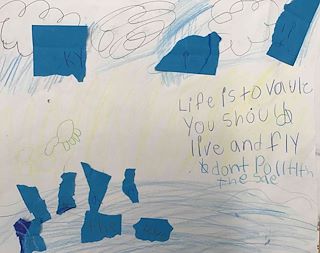 KY
Life is to vaulc
You Shoud
live and fly
dont Pollthth
The
the